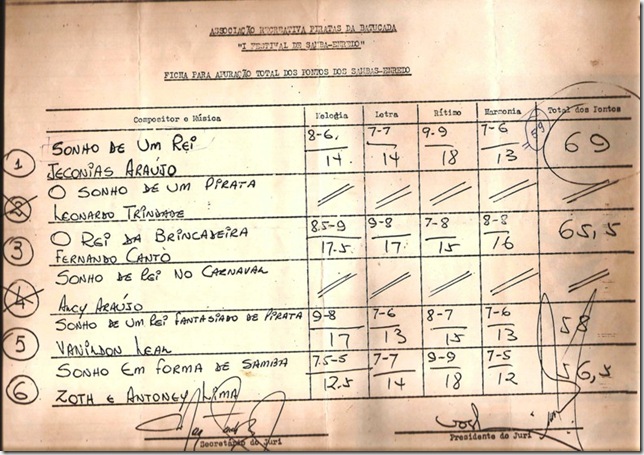 ASSOCIAÇÃO RECREATIVA PIRATAS DA BATUCADA
"I FESTIVAL DE SAMBA-ENREDO"
FICHA PARA APURAÇÃO TOTAL DOS PONTOS DOS SAMBAS-ENREDO
Compositor e Música Melodia Letra Rítimo Harmonia Total dos Pontos
1 SONHO DE UM REI 8-6 7-7 9-9 7-6 59 69
JECONIAS ARAÚJO 14 14 18 13
2 O SONHO DE UM PIRATA
LEONARDO TRINDADE
3 O REI DA BRINCADEIRA 8.5-9 9-8 7-8 8-8 65,5
FERNANDO CANTO 17.5 17 15 16
4 SONHO DE REI NO CARNAVAL
ALCY ARAUJO
5 SONHO DE UM REI FANTASIADO DE PIRATA 9-8 7-6 8-7 7-6 58
VANILDON LEAL 17 13 15 13
6 SONHO EM FORMA DE SAMBA 7.5-5 7-7 9-9 7-5 56,5
ZOTH E ANTONEY LIMA 12.5 14 18 12
Secretário do Juri Presidente do Juri